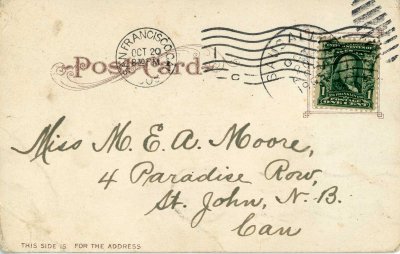 Post Card
SAN FRANCISCO, CAL
OCT 20
SAUSALITO
1
Miss M. E. A. Moore,
4 Paradise Row,
St. John, N. B.
Can
THIS SIDE IS FOR THE ADDRESS